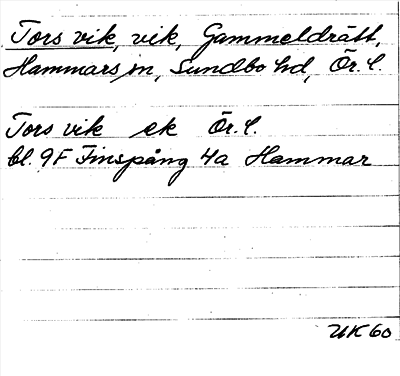 Torsvik, vik, Gammeldrätt,
Hammars sn, Sundbo hd, Ör. l.
Torsvik ek Ör. l.
bl. 9F Finspång 4a Hammar
UK 60